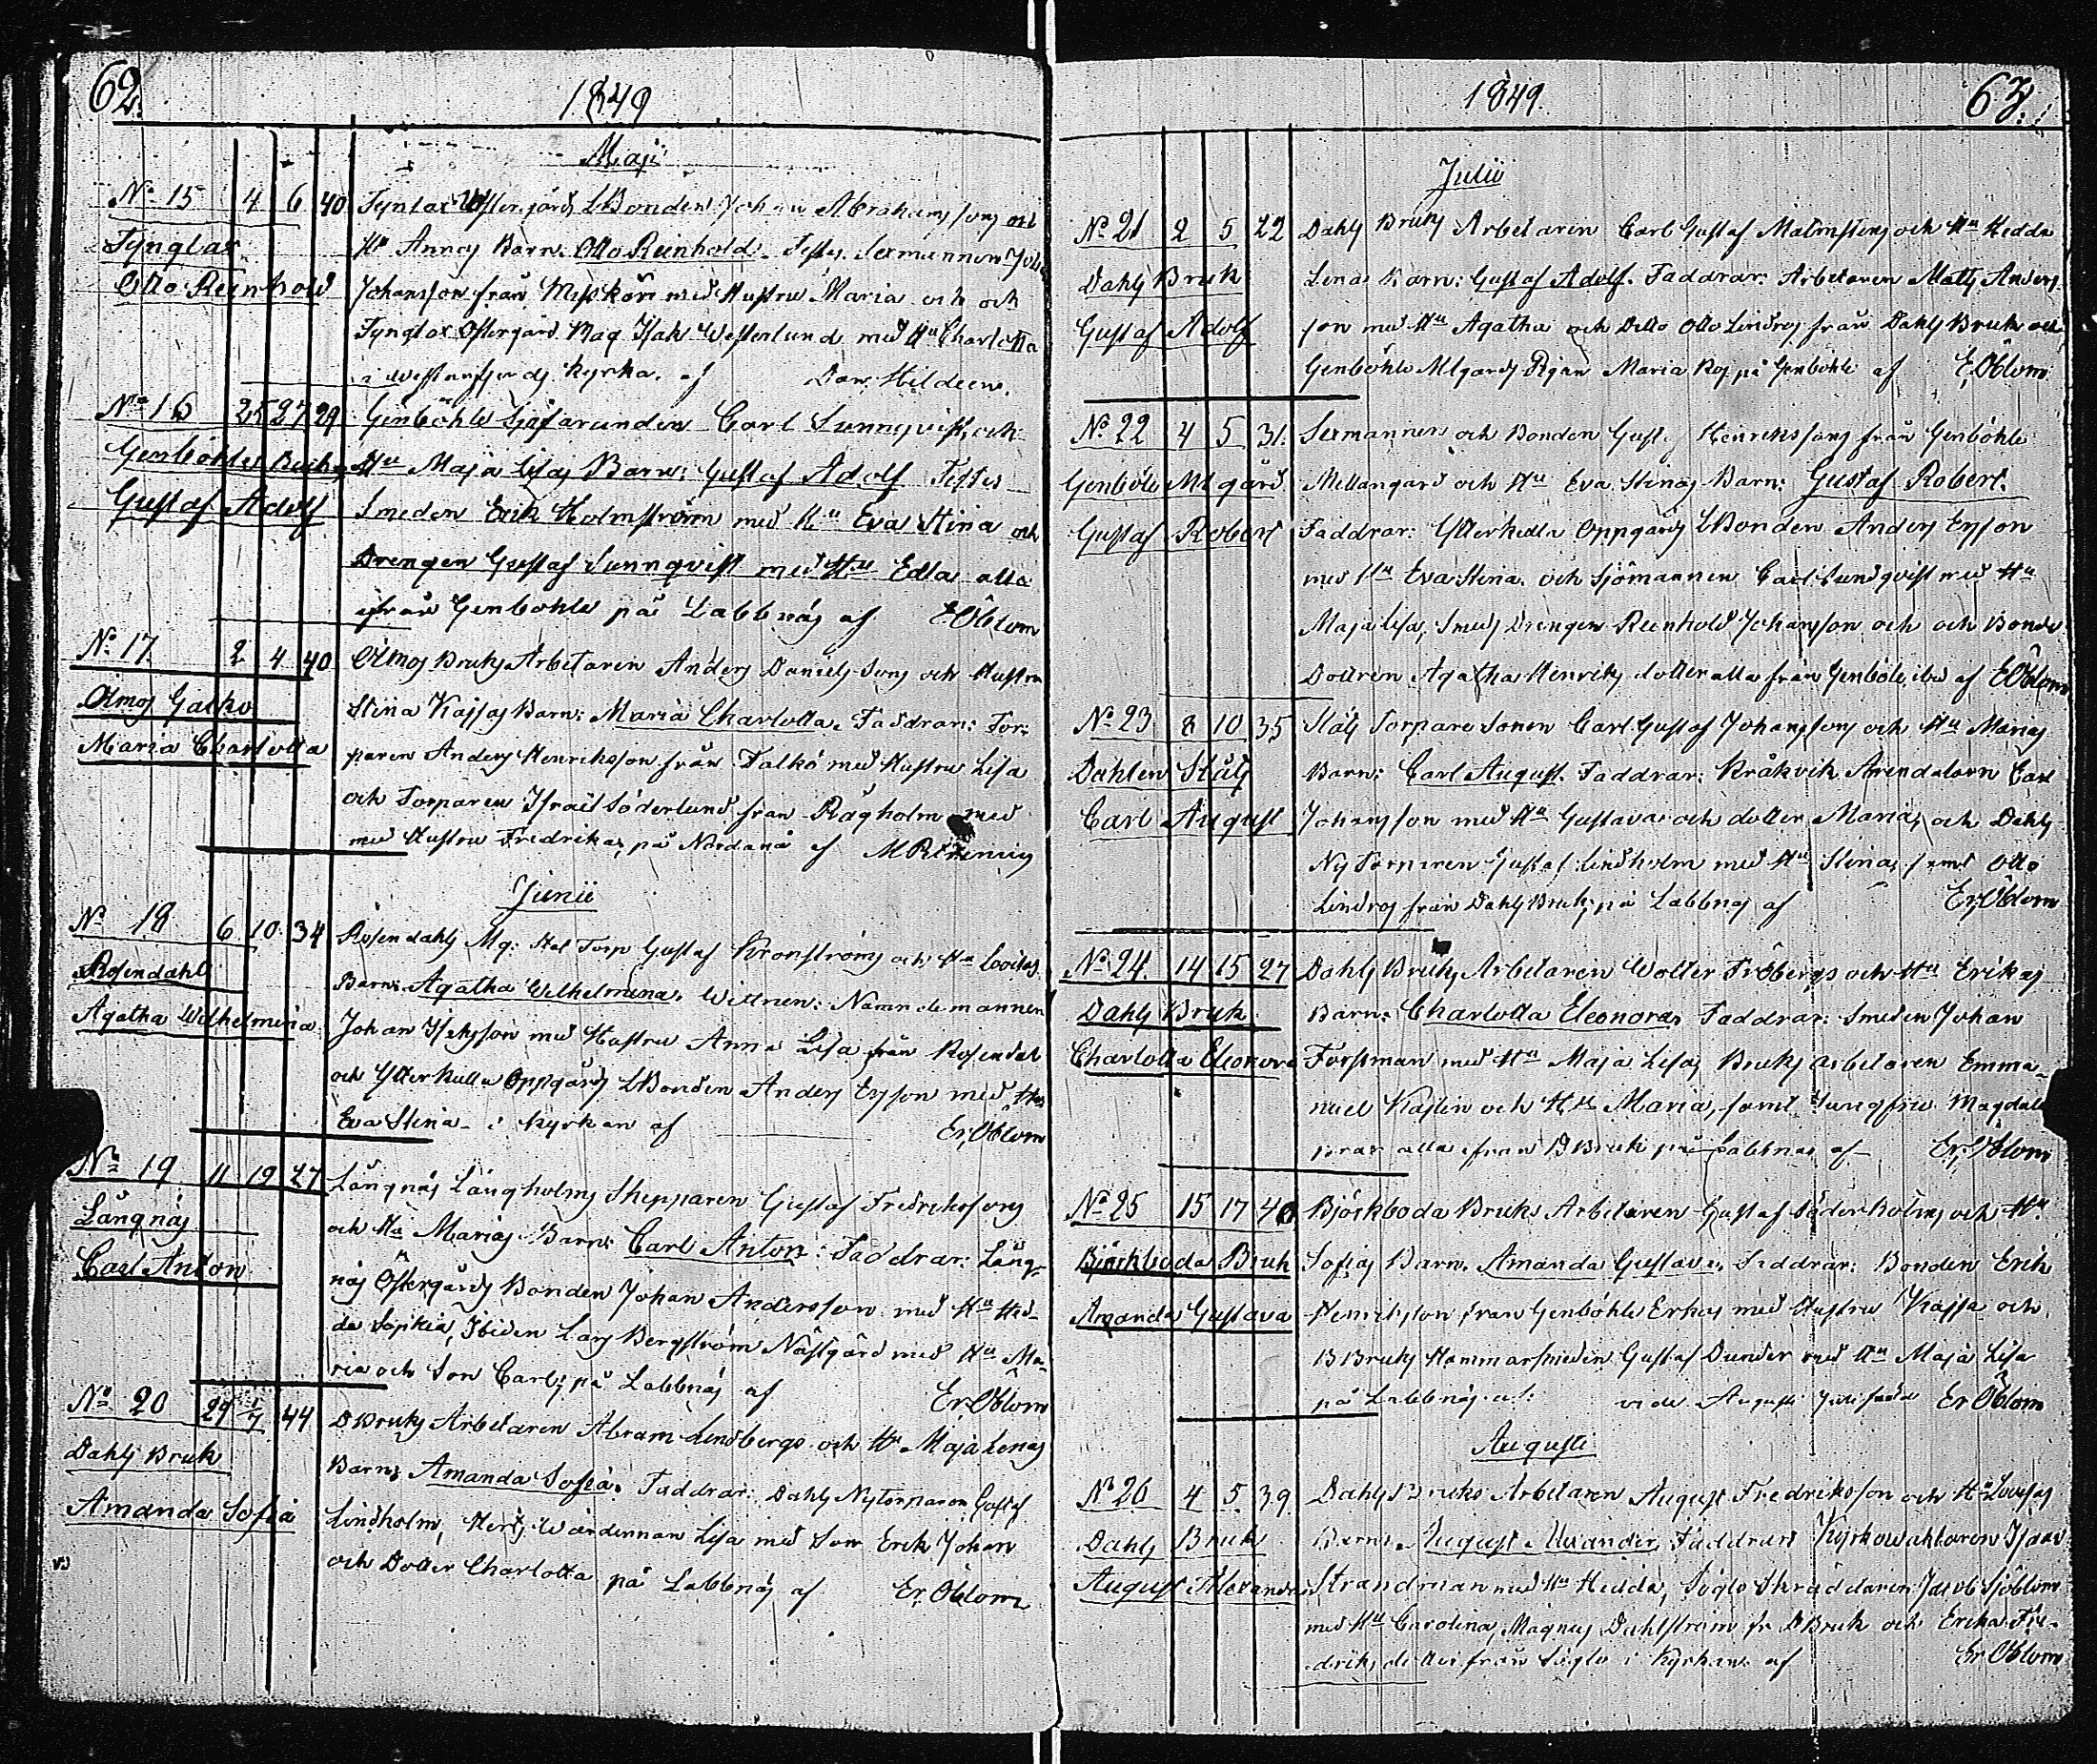 62.
1849
Maji
No 15 4 6 40 Tynglax Östergårds LBonden Johan Abrahamssons och
Tynglax Hu Annas Barn: Otto Reinhold. Testes. Sexmannen Joh.
Otto Reinhold Johansson från Misskärr med Hustru Maria och och
Tynglax Östergård Mag Isak Westerlund med Hu Charlotta
i Westanfjerds Kyrka. af Dan. Hildeen.
No 16 25 27 29 Genböhle Sjöfaranden Carl Sunnqvists och
Genböhle Hu Maja Lisas Barn: Gustaf Adolf Testes
Gustaf Adolf Smeden Erik Holmström med Hu Eva Stina och
Drengen Gustaf Sunnqvist med Hu Edla alla
ifrån Genböhle på Labbnäs af EÖblom
No 17 2 4 40 Ölmos Bruks Arbetaren Anders Daniels Sons och Hustru
Ölmos Galko Stina Kajsas Barn: Maria Charlotta. Faddrar: Tor-
Maria Charlotta paren Anders Henriksson från Falkö med Hustru Lisa
och Torparen Israel Söderlund från Rågholm med
med Hustru Fredrika, på Nordanå af
Junii
No 18 6 10 34 Rosendahls Mg: Stat Torp Gustaf Kronströms och Hu Lovisas
Rosendahl Barn: Agatha Wilhelmina. Wittnen: Nämndemannen
Agatha Wilhelmina Johan Isaksson med Hustru Anna Lisa från Rosendal
och Ytterkulla Oppgårds LBonden Anders Ersson med Hu
Eva Stina i kyrkan af Er. Öblom
No 19 11 19 27 Långnäs Långholms Skepparen Gustaf Fredrikssons
Långnäs och Hu Marias Barn: Carl Anton: Faddrar: Lång-
Carl Anton näs Östergårds Bonden Johan Andersson med Hu Hed-
da Sophia, Ibidem Lars Bergström Nästgård med Hu Ma-
ria och Son Carl; på Labbnäs af Er Öblom
No 20 29 1/7 44 DBruks Arbetaren Abram Lindbergs och Hu Maja Lenas
Dahls Bruk Barn: Amanda Sofia. Faddrar: Dahls Nytorparen Gustaf
Amanda Sofia Lindholm, Wärdinnan Lisa med Son Erik Johan
och Dotter Charlotta på Labbnäs af Er. Öblom
1849.
63.
Julii
No 21 2 5 22 Dahls Bruks Arbetaren Carl Gustaf Malmstens och Hu Hedda
Dahls Bruk Lenas Barn: Gustaf Adolf. Faddrar: Arbetaren Mats Anders-
Gustaf Adolf son med Hu Agatha och Ditto Otto Lindros från Dahls Bruk och
Genböhle Mlgårds Pigan Maria Ros, på Genböhle af E. Öblom
No 22 4 5 31. Sexmannen och Bonden Gust. Henrikssons från Genböhle
Genböle Mlgård Mellangård och Hu Eva Stinas Barn: Gustaf Robert.
Gustaf Robert Faddrar: Ytterkulla Oppgårds LBonden Anders Ersson
med Hu Eva Stina och Sjömannen Carl Sundqvist med Hu
Maja Lisa, Smeds Drengen Reinhold Johansson och och Bonde
Dottren Agatha Henriks dotter alla från Genböle, ibid af EÖblom
No 23 8 10 35 Ståls Torpare Sonen Carl Gustaf Johanssons och Hu Marias
Dahlen Ståls Barn: Carl August. Faddrar: Kråkvik Arendatorn Carl
Carl August Johansson med Hu Gustava och dotter Maria, och Dahls
Ny Torparen Gustaf Lindholm med Hu Stina, samt Otto
Lindros från Dahls Bruk, på Labbnäs af Er. Öblom
No 24. 14 15 27 Dahls Bruks Arbetaren Wolter Fröbergs och Hu Erikas
Dahls Bruk Barn: Charlotta Eleonora. Faddrar: Smeden Johan
Charlotta Eleonora Forssman med Hu Maja Lisa, Bruks arbetaren Emma-
nuel Kajlin och Hu Maria, samt Jungfru Magdalena
alla från DBruk på Labbnäs af Er. Öblom
No 25 15 17 40 Björkboda Bruks Arbetaren Gustaf Söderholms och Hu
Björkboda Bruk Sofias Barn. Amanda Gustava. Faddrar: Bonden Erik
Amanda Gustava Henriksson från Genböhle Erkas med Hustru Kajsa och
BBruks Hammarsmeden Gustaf Dunder med Hu Maja Lisa
på Labbnäs af: vide Augusti Er Öblom
Augusti
No 26 4 5 39 Dahls Bruks Arbetaren August Fredriksson och Hu Lovisas
Dahls Bruk Barn: August Alexander. Faddrar: Kyrkowaktaren Isaac
August Alexander Strandman med Hu Hedda, Söglö Skräddaren Jacob Sjöblom
med Hu Carolina, Magnus Dahlström fr DBruk och Erika Fre-
driks dotter från Söglö i Kyrkan af Er Öblom